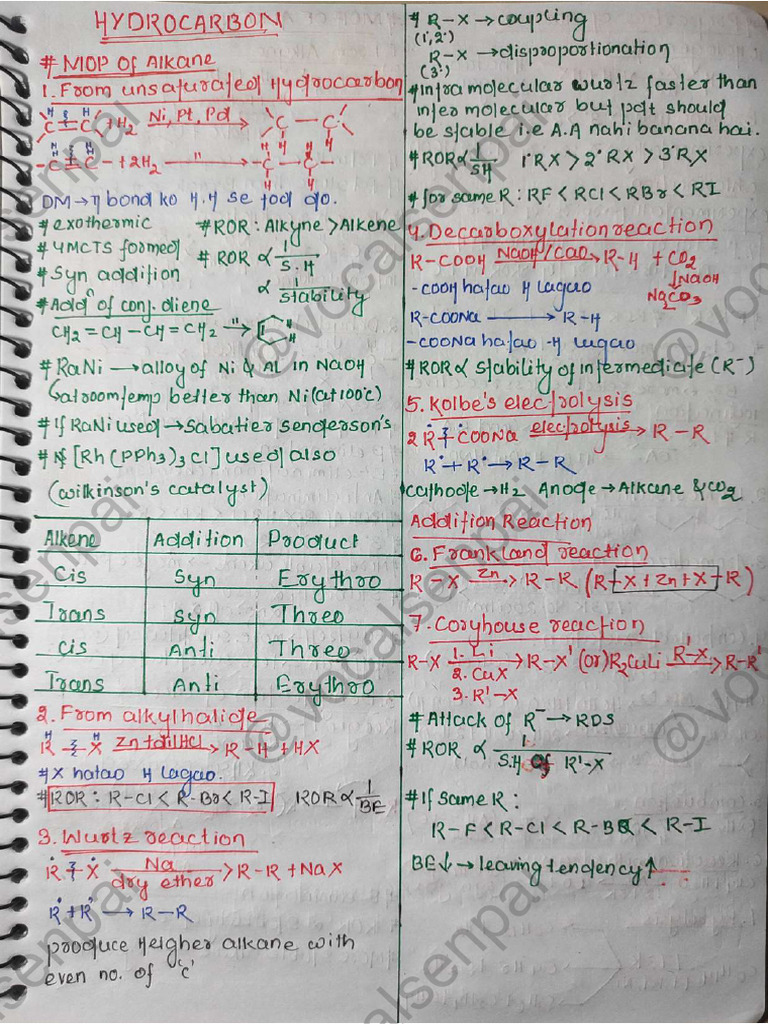 HYDROCARBON
# MOP of Alkane
1. From unsaturated Hydrocarbon
C = C + H2 Ni, Pt, Pd → C - C
H H
-C ≡ C- + 2H2 → " -C - C-
H H
H H
DM → π bond ko H.H se tod do.
# exothermic # ROR : Alkyne > Alkene
# 4MCTS formed # ROR ∝ 1/S.H
# Syn addition ∝ 1/stability
# Addn of conj. diene
CH2 = CH - CH = CH2 "→ H H
# RaNi → alloy of Ni & Al in NaOH
↳ at room temp better than Ni (at 100°c)
# If RaNi used → Sabatier senderson's
# If [Rh(PPh3)3Cl] used also
(wilkinson's catalyst)
Alkene Addition Product
Cis Syn Erythro
Trans Syn Threo
cis Anti Threo
Trans Anti Erythro
2. From alkylhalide
R - X Zn + dil HCl → R-H + HX
# X hatao H lagao.
# ROR : R-Cl < R-Br < R-I ROR ∝ 1/BE
3. Wurtz reaction
R + X Na dry ether → R-R + NaX
R• + R• → R-R
produce Heigher alkane with
even no. of 'c'
# R-X → coupling
(1°,2°)
R-X → disproportionation
(3°)
# Intramolecular wurtz faster than
inter molecular but pdt should
be stable i.e A.A nahi banana hai.
# ROR ∝ 1/SH 1°RX > 2°RX > 3°RX
# for same R : RF < RCl < RBr < RI
4. Decarboxylation reaction
R-COOH NaOH/CaO → R-H + CO2
↓NaOH
Na2CO3
-COOH hatao H lagao
R-COONa → R-H
-COONa hatao -H lagao
# ROR ∝ stability of intermediate (R⁻)
5. Kolbe's electrolysis
2 R + COONa electrolysis → R-R
R• + R• → R-R
Cathode → H2 Anode → Alkane & CO2
Addition Reaction
6. Frankland reaction
R-X Zn → R-R (R+X+Zn+X+R)
7. Coryhouse reaction
R-X 1. Li 2. CuX 3. R'-X → R-X' (or) R2CuLi R'-X → R-R'
# Attack of R⁻ → RDS
# ROR ∝ 1/S.H of R'-X
# If same R :
R-F < R-Cl < R-BR < R-I
BE↓ → leaving tendency↑
@vocalsenpai